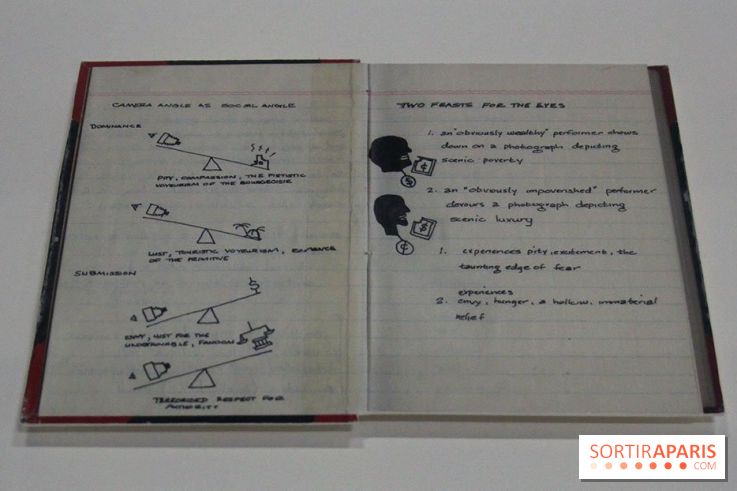 CAMERA ANGLE AS SOCIAL ANGLE
DOMINANCE
PITY, COMPASSION, THE PIETISTIC
VOYEURISM OF THE BOURGEOISIE
LUST, TOURISTIC VOYEURISM, ROMANCE
OF THE PRIMITIVE
SUBMISSION
ENVY, LUST FOR THE
UNOBTAINABLE, FANDOM
TERRORIZED RESPECT FOR
AUTHORITY
TWO FEASTS FOR THE EYES
1. an "obviously wealthy" performer chows
down on a photograph depicting
scenic poverty
¢
$
2. an "obviously impoverished" performer
devours a photograph depicting
scenic luxury
$
¢
1. experiences pity, excitement, the
taunting edge of fear
experiences
2. envy, hunger, a hollow, immaterial
relief
SORTIRAPARIS
.COM